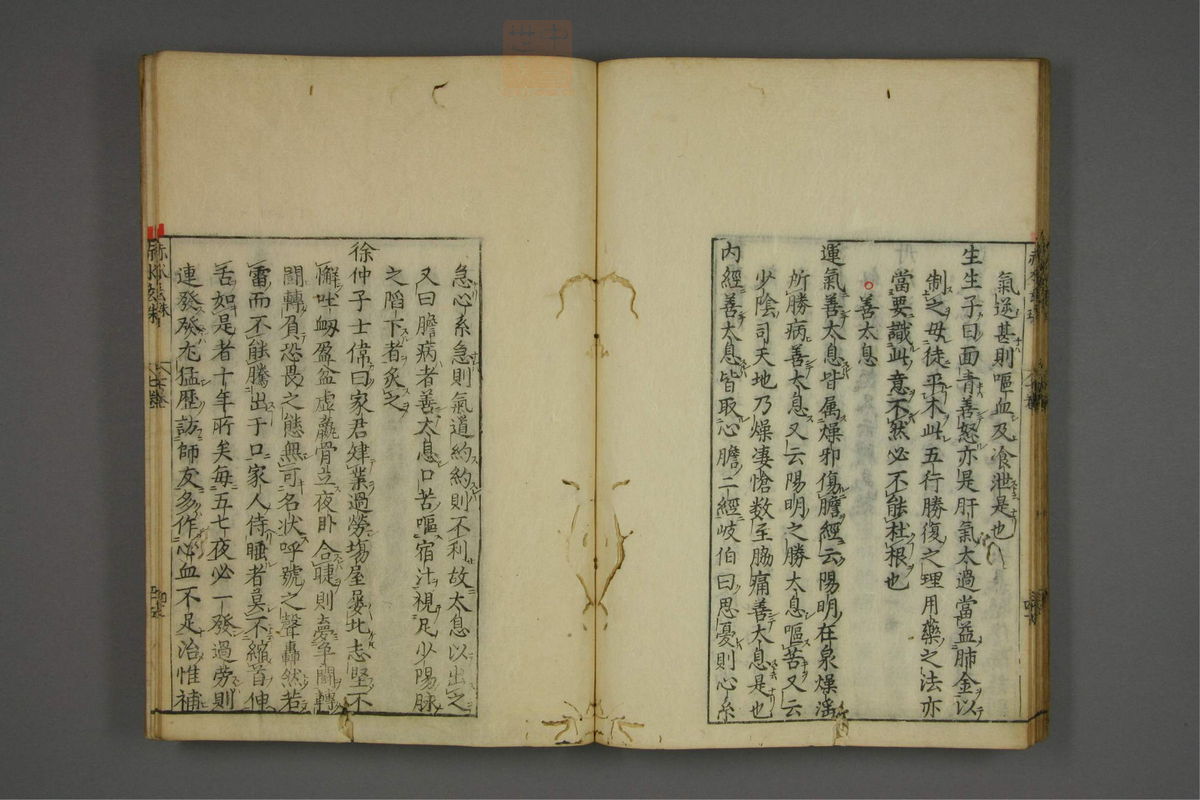 氣逆甚則嘔血及飡泄是也
生生子曰面青善怒亦是肝氣太過當益肺金以
制之毋徒平木此五行勝復之理用藥之法亦
當要識此意不然必不能杜根也
善太息
運氣善太息皆属燥邪傷膽經云陽明在泉燥淫
所勝病善太息又云陽明之勝太息嘔苦又云
少陰司天地乃燥凄愴数至脇痛善太息是也
内經善太息皆取心膽二經岐伯曰思憂則心系
急心系急則氣道約約則不利故太息以出之
又曰膽病者善太息口苦嘔宿汁視足少陽脉
之陷下者灸之
徐仲子士偉曰家君肄業過勞場屋屡北志堅不
懈吐衂盈盆虚羸骨立夜卧合睫則夢争闘轉
闘轉負恐畏之態無可名状呼號之聲轟然若
雷而不能騰出于口家人侍睡者莫不縮首伸
舌如是者十年所矣每五七夜必一發過勞則
連發發尤猛歷訪師友多作心血不足治惟補
赤水玄珠